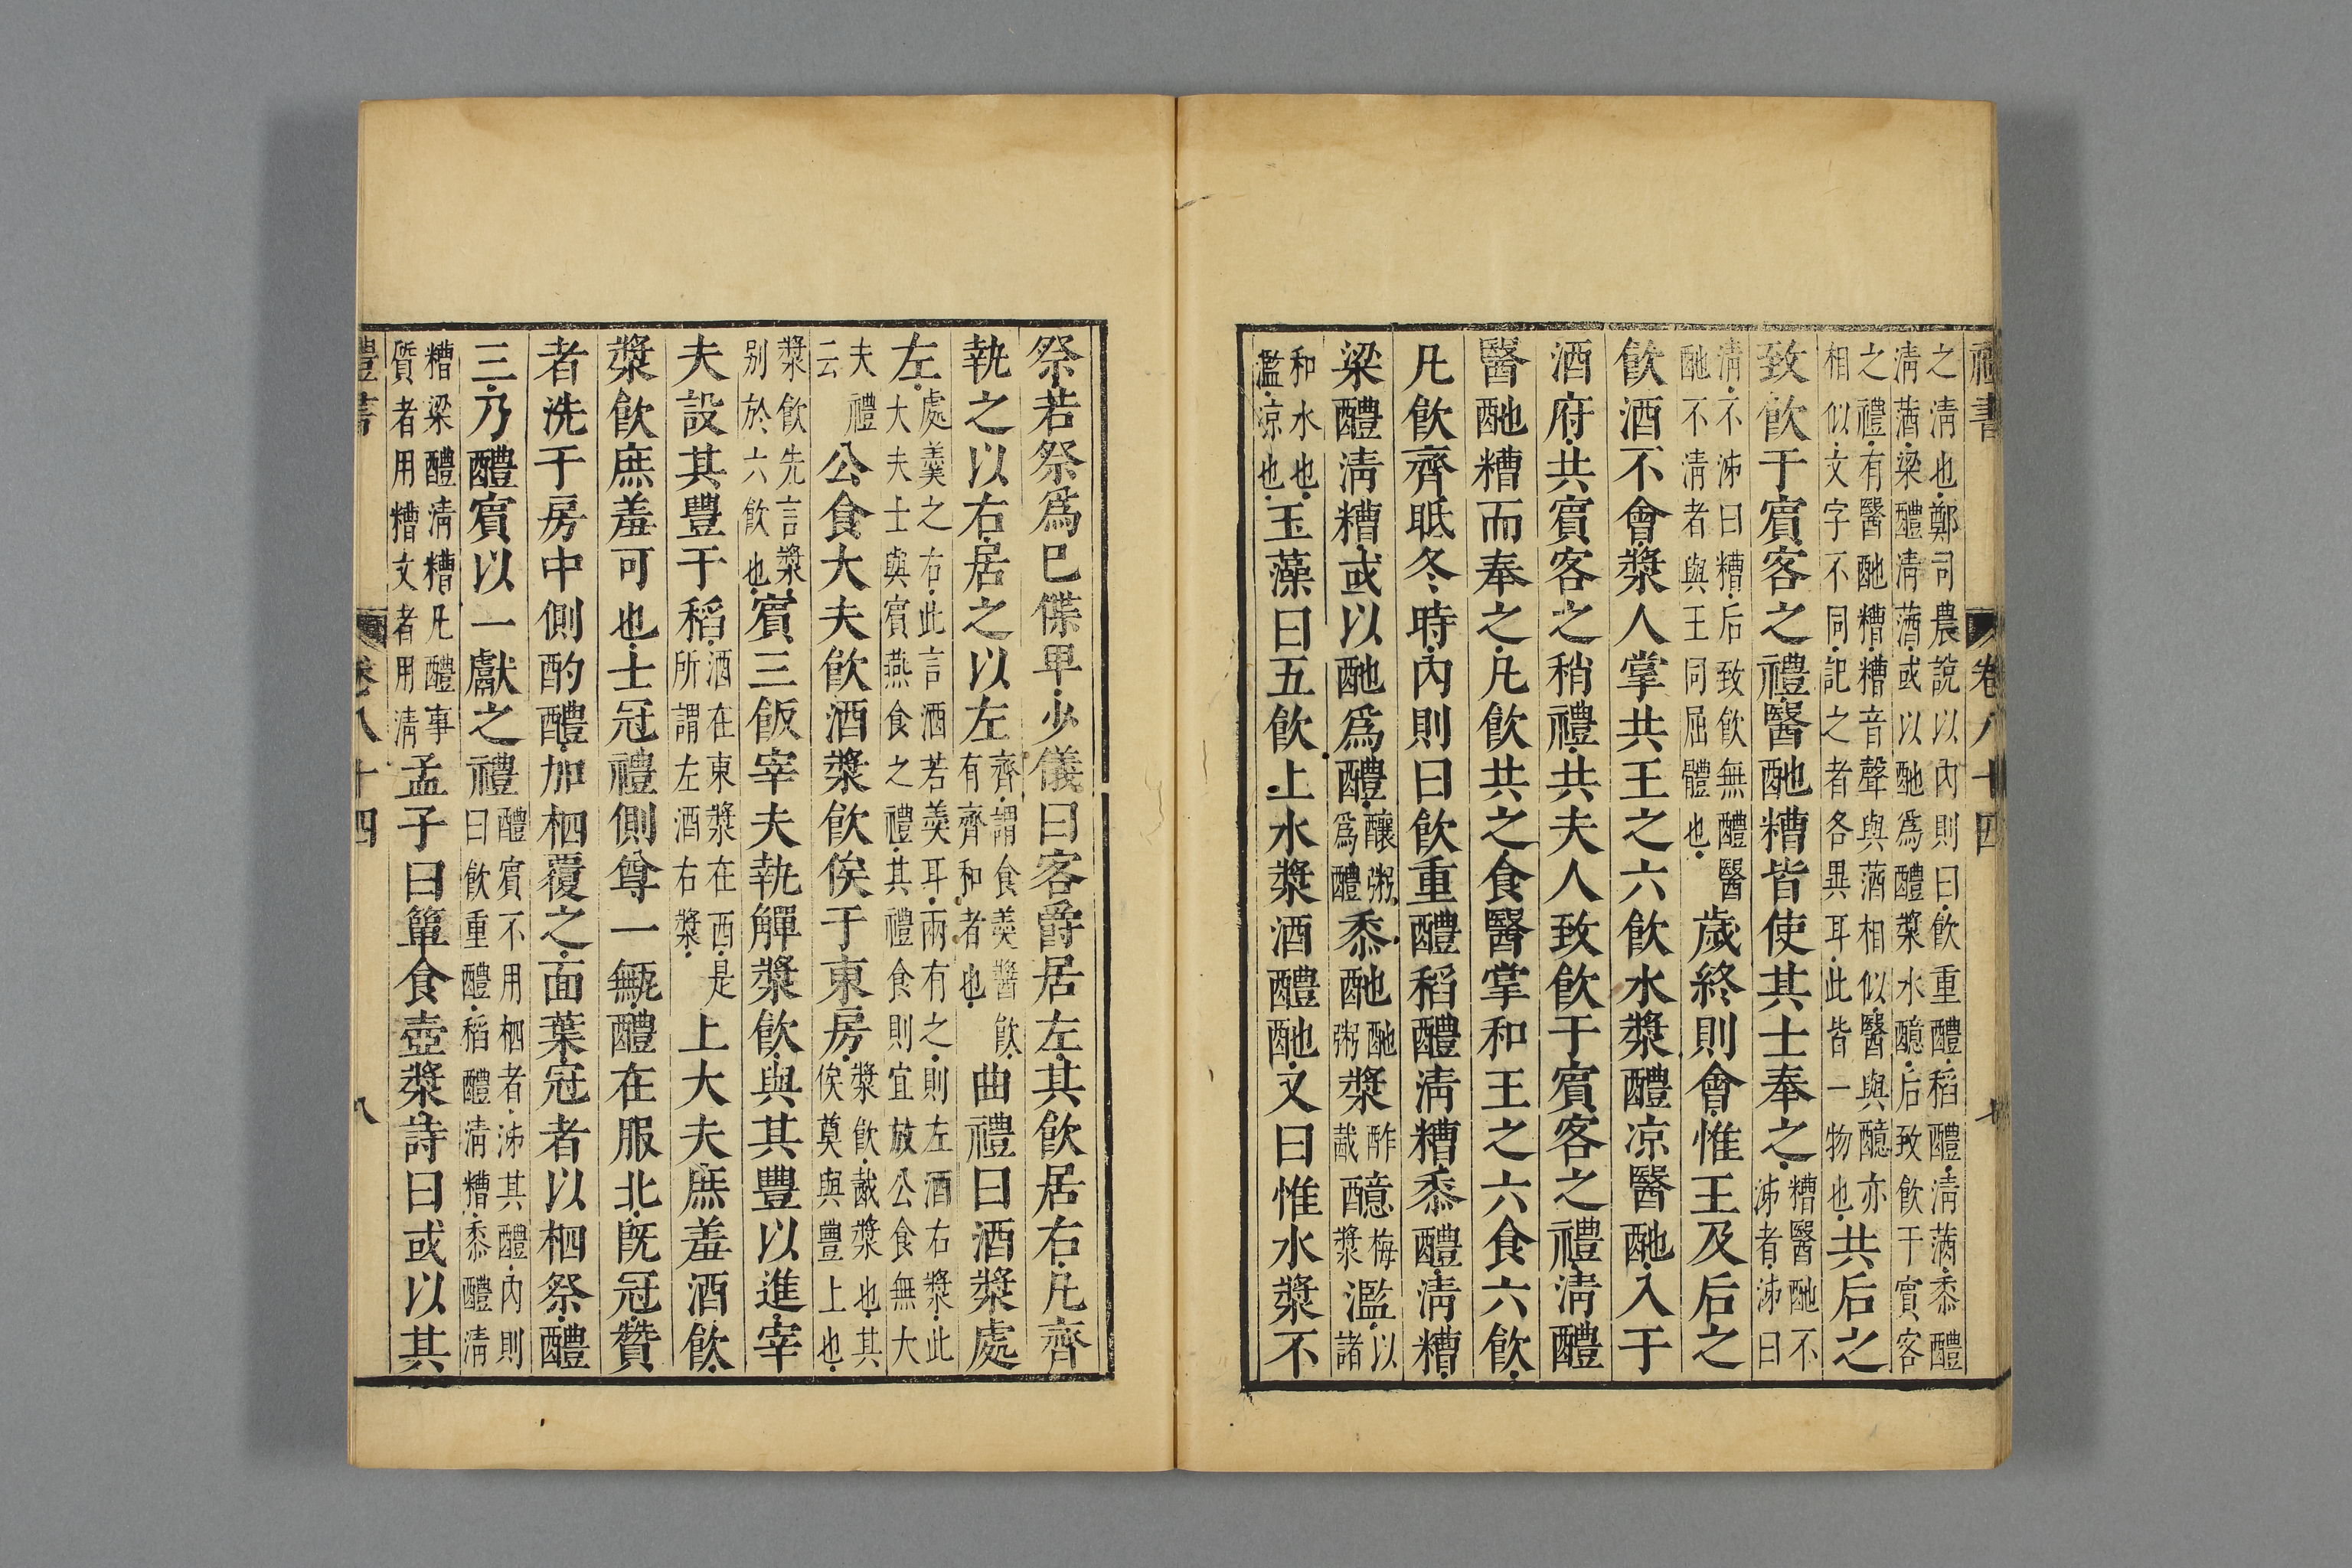 禮書 卷八十四 七
之淸也鄭司農說以內則曰飲重醴稻醴淸𨢬黍醴
淸𨢬梁醴淸𨢬或以酏爲醴漿水醷后致飲于賓客
之禮有醫酏糟糟音聲與𨢬相似醫與醷亦
相似文字不同記之者各異耳此皆一物也共后之
致飲于賓客之禮醫酏糟皆使其士奉之糟醫酏不
泲者泲曰
淸不泲曰糟后致飲無醴醫
酏不淸者與王同屈體也歲終則會惟王及后之
飲酒不會漿人掌共王之六飲水漿醴凉醫酏入于
酒府共賓客之稍禮共夫人致飲于賓客之禮淸醴
醫酏糟而奉之凡飲共之食醫掌和王之六食六飲
凡飲齊眡冬時內則曰飲重醴稻醴淸糟黍醴淸糟
梁醴淸糟或以酏爲醴釀粥爲醴黍酏酏粥漿酢酨醷梅漿濫以諸
和水也
濫凉也玉藻曰五飲上水漿酒醴酏文曰惟水漿不
祭若祭爲巳僷卑少儀曰客爵居左其飲居右凡齊
執之以右居之以左齊謂食羹醬飲有齊和者也曲禮曰酒漿處
左處羹之右此言酒若羹耳兩有之則左酒右漿此
大夫士與賓燕食之禮其禮食則宜放公食無大
夫禮
云公食大夫飲酒漿飲俟于東房漿飲酨漿也其
俟奠與豐上也
漿飲先言漿
别於六飲也賓三飯宰夫執觶漿飲與其豐以進宰
夫設其豐于稻酒在東漿在西是所謂左酒右漿上大夫庶羞酒飲
漿飲庶羞可也士冠禮側尊一甒醴在服北旣冠贊
者洗于房中側酌醴加柶覆之面葉冠者以柶祭醴
三乃醴賓以一獻之禮醴賓不用柶者泲其醴內則
曰飲重醴稻醴淸糟黍醴淸
糟梁醴淸糟凡醴事
質者用糟文者用淸孟子曰簞食壺漿詩曰或以其
禮書 卷八十四 八